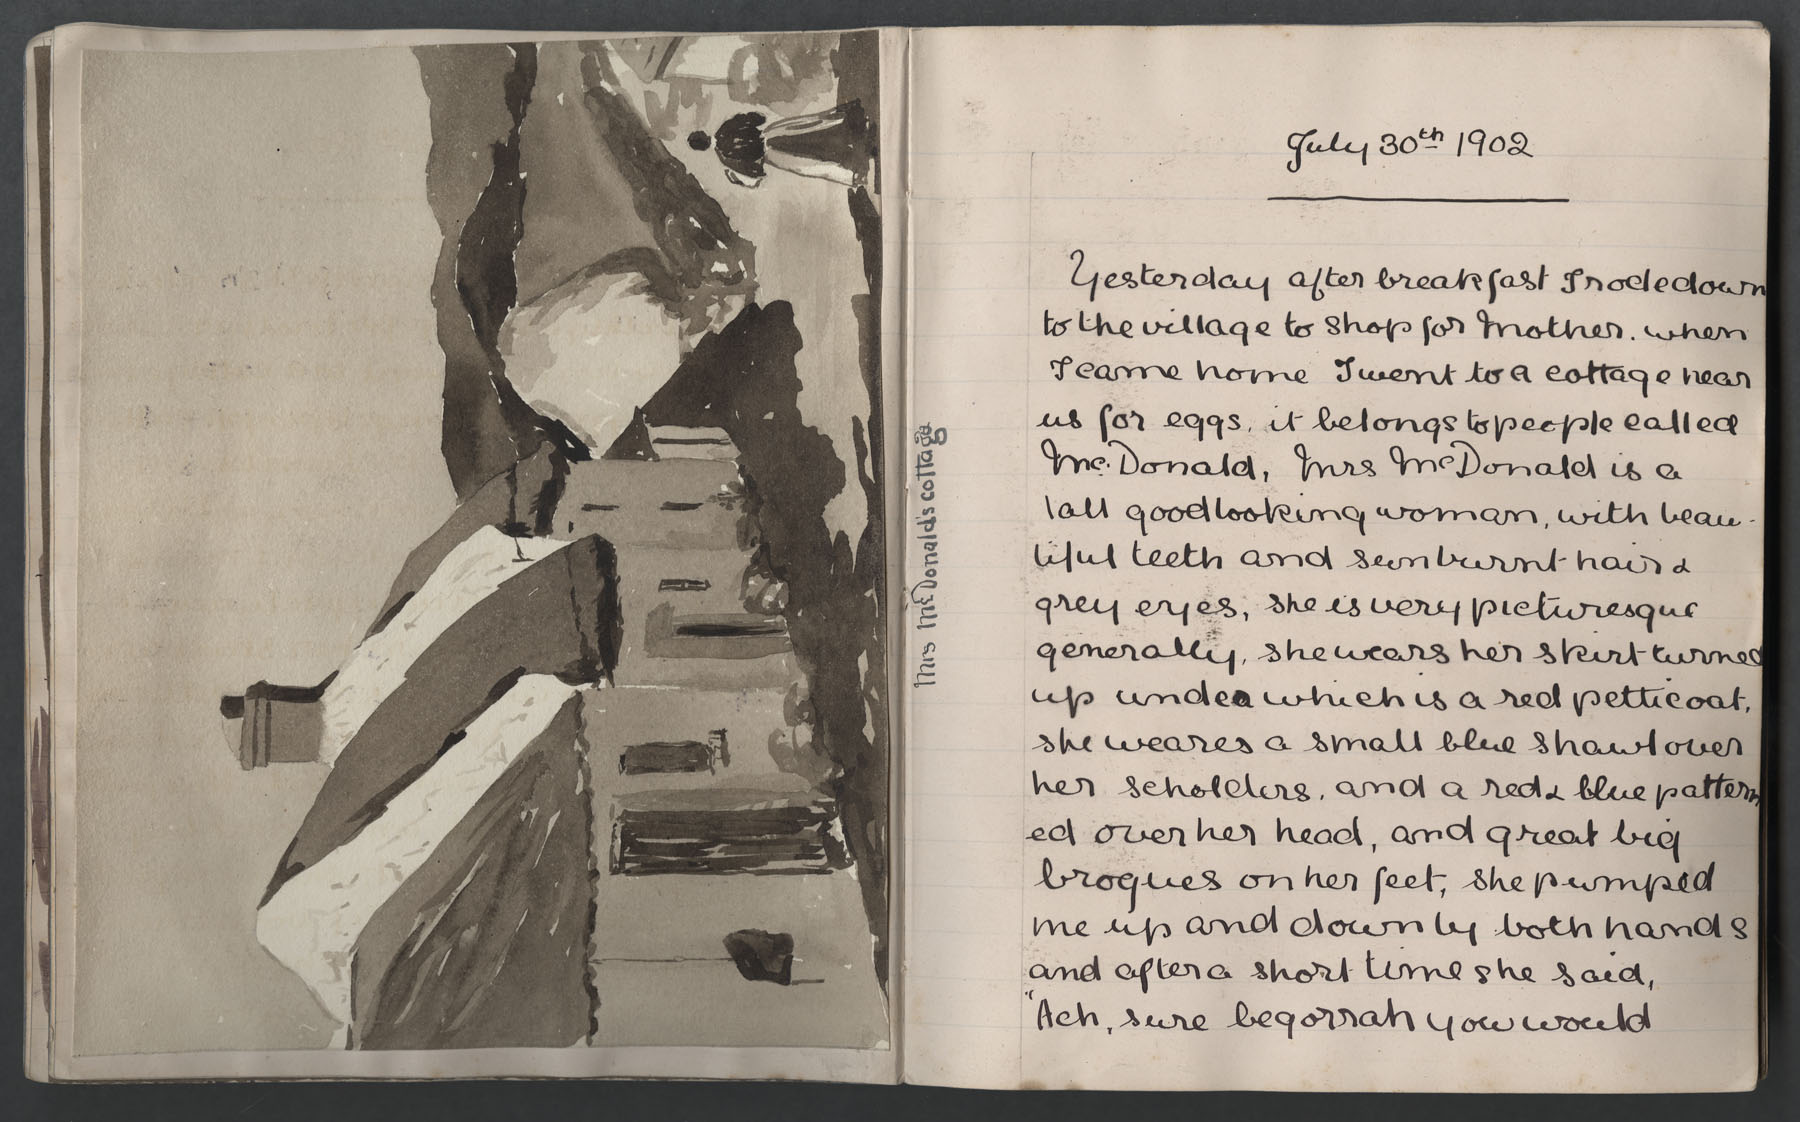 Mrs McDonald's cottage
July 30th 1902
Yesterday after breakfast I rode down
to the village to shop for Mother. when
I came home I went to a cottage near
us for eggs, it belongs to people called
Mc.Donald, Mrs McDonald is a
tall goodlooking woman, with beau-
tiful teeth and sunburnt hair &
grey eyes, she is very picturesque
generally, she wears her skirt turned
up under which is a red petticoat,
she weares a small blue shawl over
her scholders, and a red & blue pattern
ed over her head, and great big
brogues on her feet, she pumped
me up and down by both hands
and after a short time she said,
"Ach, sure begorrah you would